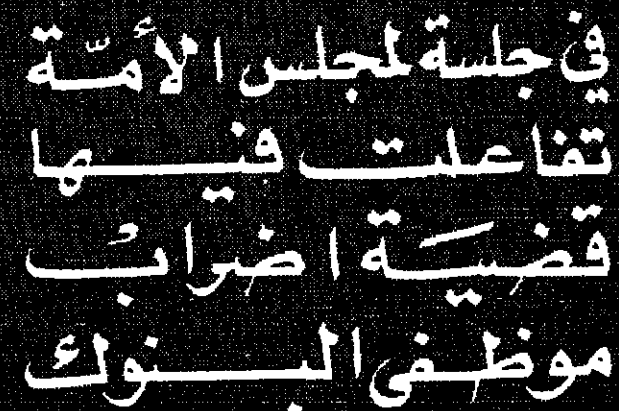 في جلسة لمجلس الأمّة
تفاعلت فيها
قضيَة اضرابُ
موظفى البنوك